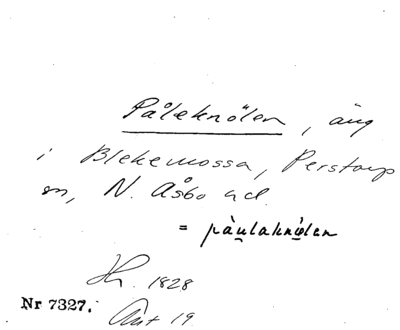 Påleknölen, äng
i Blekemossa, Perstorp
sn, N. Åsbo hd.
= pàulaknølen
1828
Nr 7327.
Ant 19